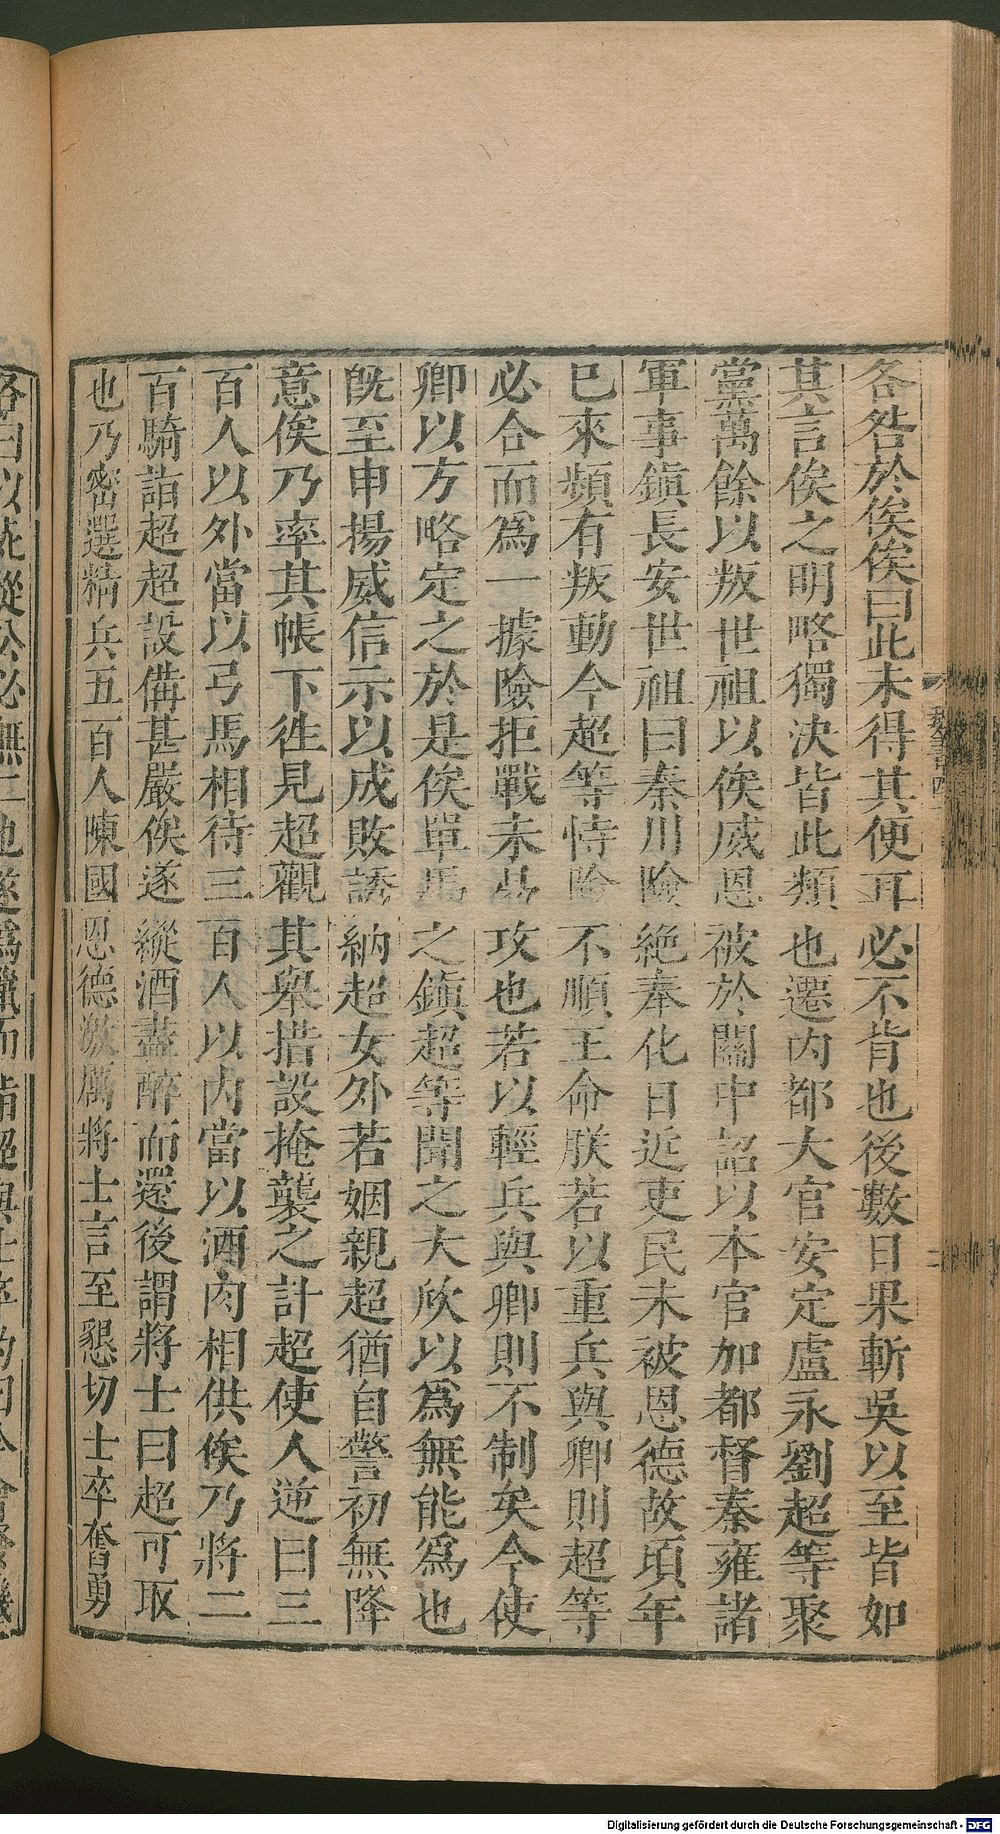 各咎於俟俟曰此未得其使耳必不肯也後數日果斬吳以至皆如
其言俟之明略獨決皆此類也遷內都大官安定盧永劉超等聚
黨萬餘以叛世祖以俟威恩被於關中詔以本官加都督秦雍諸
軍事鎭長安世祖曰秦川險絶奉化日近吏民未被恩德故頃年
已來頻有叛動今超等恃險不順王命朕若以重兵與卿則超等
必合而爲一據險拒戰未易攻也若以輕兵與卿則不制矣今使
卿以方略定之於是俟單馬之鎭超等聞之大欣以爲無能爲也
旣至申揚威信示以成敗誘納超女外若姻親超猶自警初無降
意俟乃率其帳下往見超觀其舉措設掩襲之計超使人逆曰三
百人以外當以弓馬相待三百人以內當以酒肉相供俟乃將二
百騎詣超超設備甚嚴俟遂縱酒盡醉而還後謂將士曰超可取
也乃密選精兵五百人陳國恩德激厲將士言至懇切士卒奮勇
Digitalisierung gefördert durch die Deutsche Forschungsgemeinschaft - DFG